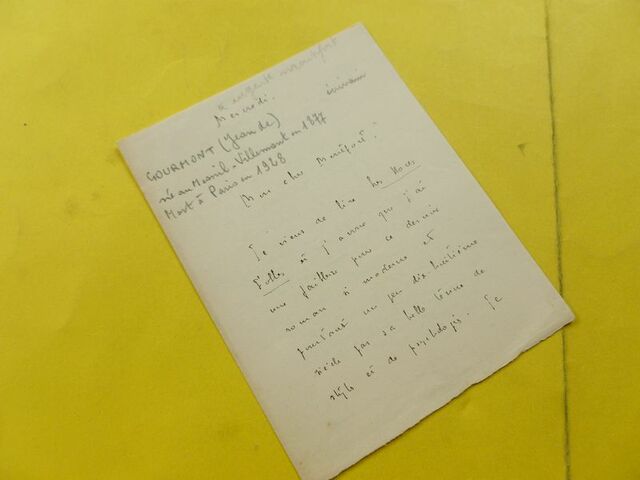 à eugène montfort
Mercredi.
écrivain
GOURMONT (Jean de)
né au Mesnil-Villement en 1877
Mort à Paris en 1928
Mon cher Montfort,
Je viens de lire Les Noces
folles et j'avoue que j'ai
une faiblesse pour ce dernier
roman si moderne et
pourtant un peu dix huitième
siècle par sa belle tenue de
style et de psychologie. Je